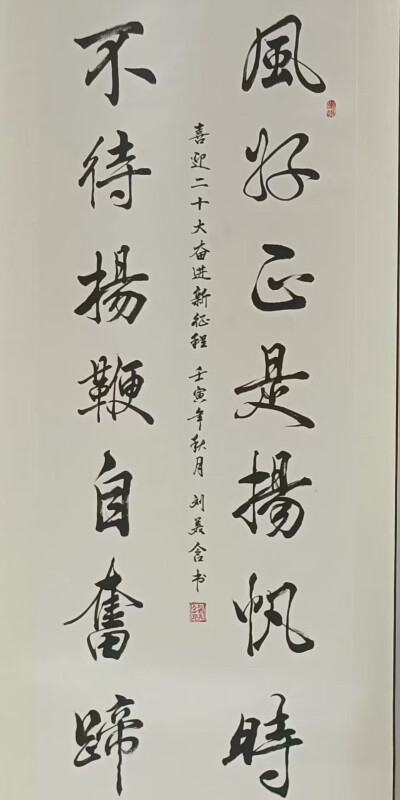 風好正是揚帆時
喜迎二十大奋进新征程 壬寅年秋月 刘美含书
不待揚鞭自奮蹄